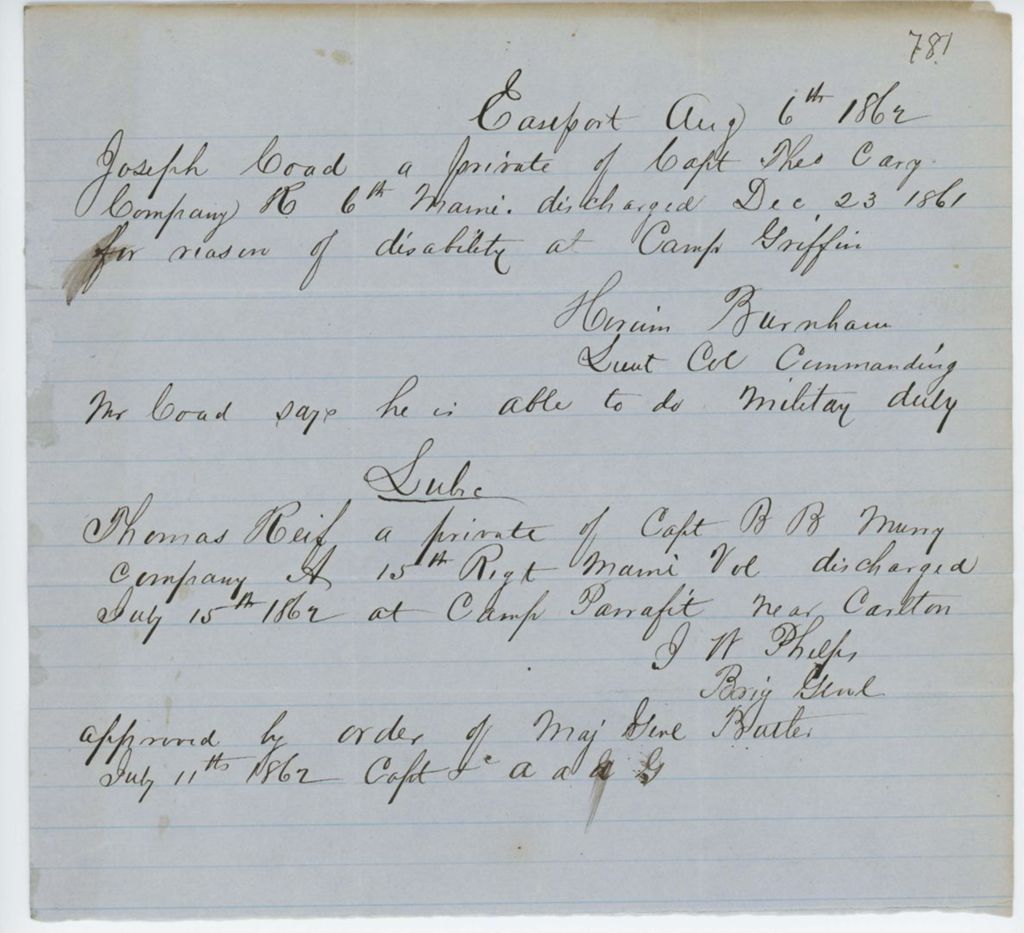 781
Eastport Aug 6th 1862
Joseph Coad a private of Capt Theo Cary
Company K 6th Maine. discharged Dec 23 1861
for reason of disability at Camp Griffin
Hiram Burnham
Lieut Col Commanding
Mr Coad says he is able to do Military duty
Lubec
Thomas a private of Capt B B Murry
Company A 15th Regt Maine Vol discharged
July 15th 1862 at Camp near Carlton
J W Phelps
Brig Genl
approved by order of Maj Genl Butler
July 11th 1862 Capt & a a a G